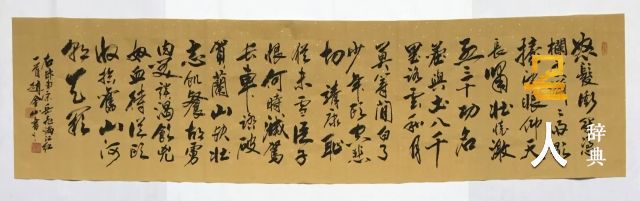 怒髮衝冠憑
欄處瀟瀟雨歇
抬望眼仰天
長嘯壯懷激
烈三十功名
塵與土八千
里路雲和月
莫等閒白了
少年頭空悲
切靖康恥
猶未雪臣子
恨何時滅駕
長車踏破
賀蘭山缺壯
志飢餐胡虜
肉笑談渴飲匈
奴血待從頭
收拾舊山河
朝天闕
右錄南宋岳飛滿江红
一首趙金山書
人
辞典